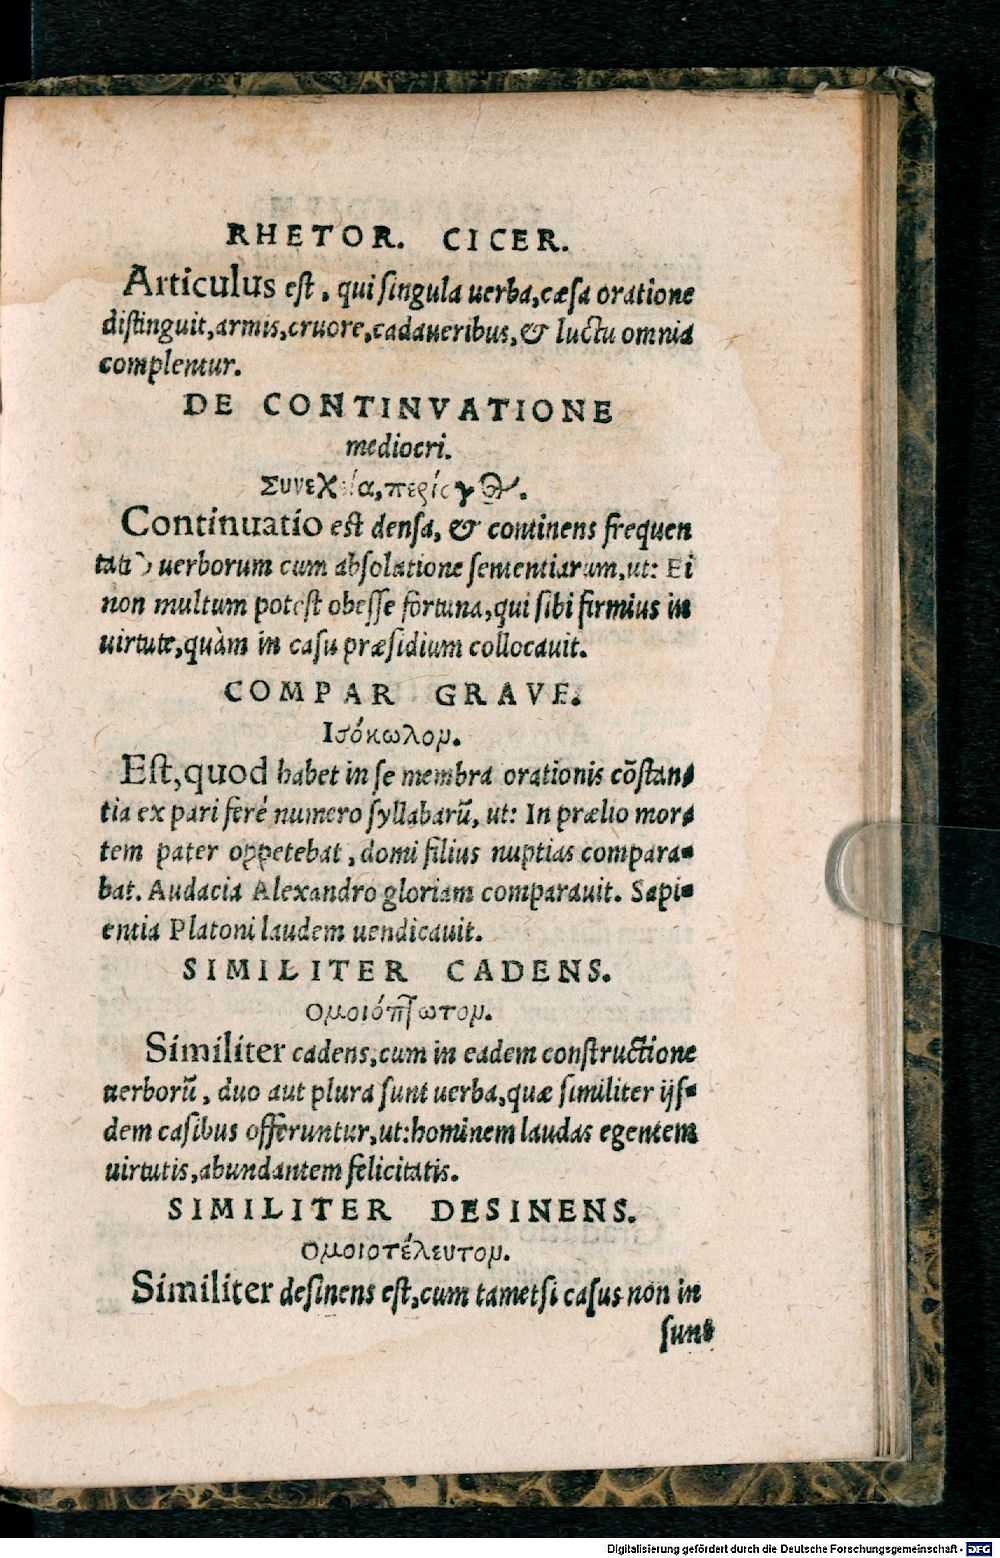 RHETOR. CICER.
Articulus est, qui singula uerba,cæsa oratione
distinguit,armis,cruore,cadaueribus,& luctu omnia
complentur.
DE CONTINVATIONE
mediocri.
Συνεχεία,
Continuatio est densa, & continens frequen
uerborum cum absolutione sententiarum,ut: Ei
non multum potest obesse fortuna,qui sibi firmius in
uirtute,quàm in casu præsidium collocauit.
COMPAR GRAVE.
Ισόκωλομ.
Est,quod habet in se membra orationis cōstan-
tia ex pari ferè numero syllabarū, ut: In prælio mor-
tem pater oppetebat, domi filius nuptias compara-
bat. Audacia Alexandro gloriam comparauit. Sapi-
entia Platoni laudem uendicauit.
SIMILITER CADENS.
Ομοιόπτωτομ.
Similiter cadens,cum in eadem constructione
uerborū, duo aut plura sunt uerba,quæ similiter ijs-
dem casibus offeruntur,ut:hominem laudas egentem
uirtutis,abundantem felicitatis.
SIMILITER DESINENS.
Ομοιοτέλευτομ.
Similiter desinens est,cum tametsi casus non in
sunt
Digitalisierung gefördert durch die Deutsche Forschungsgemeinschaft - DFG